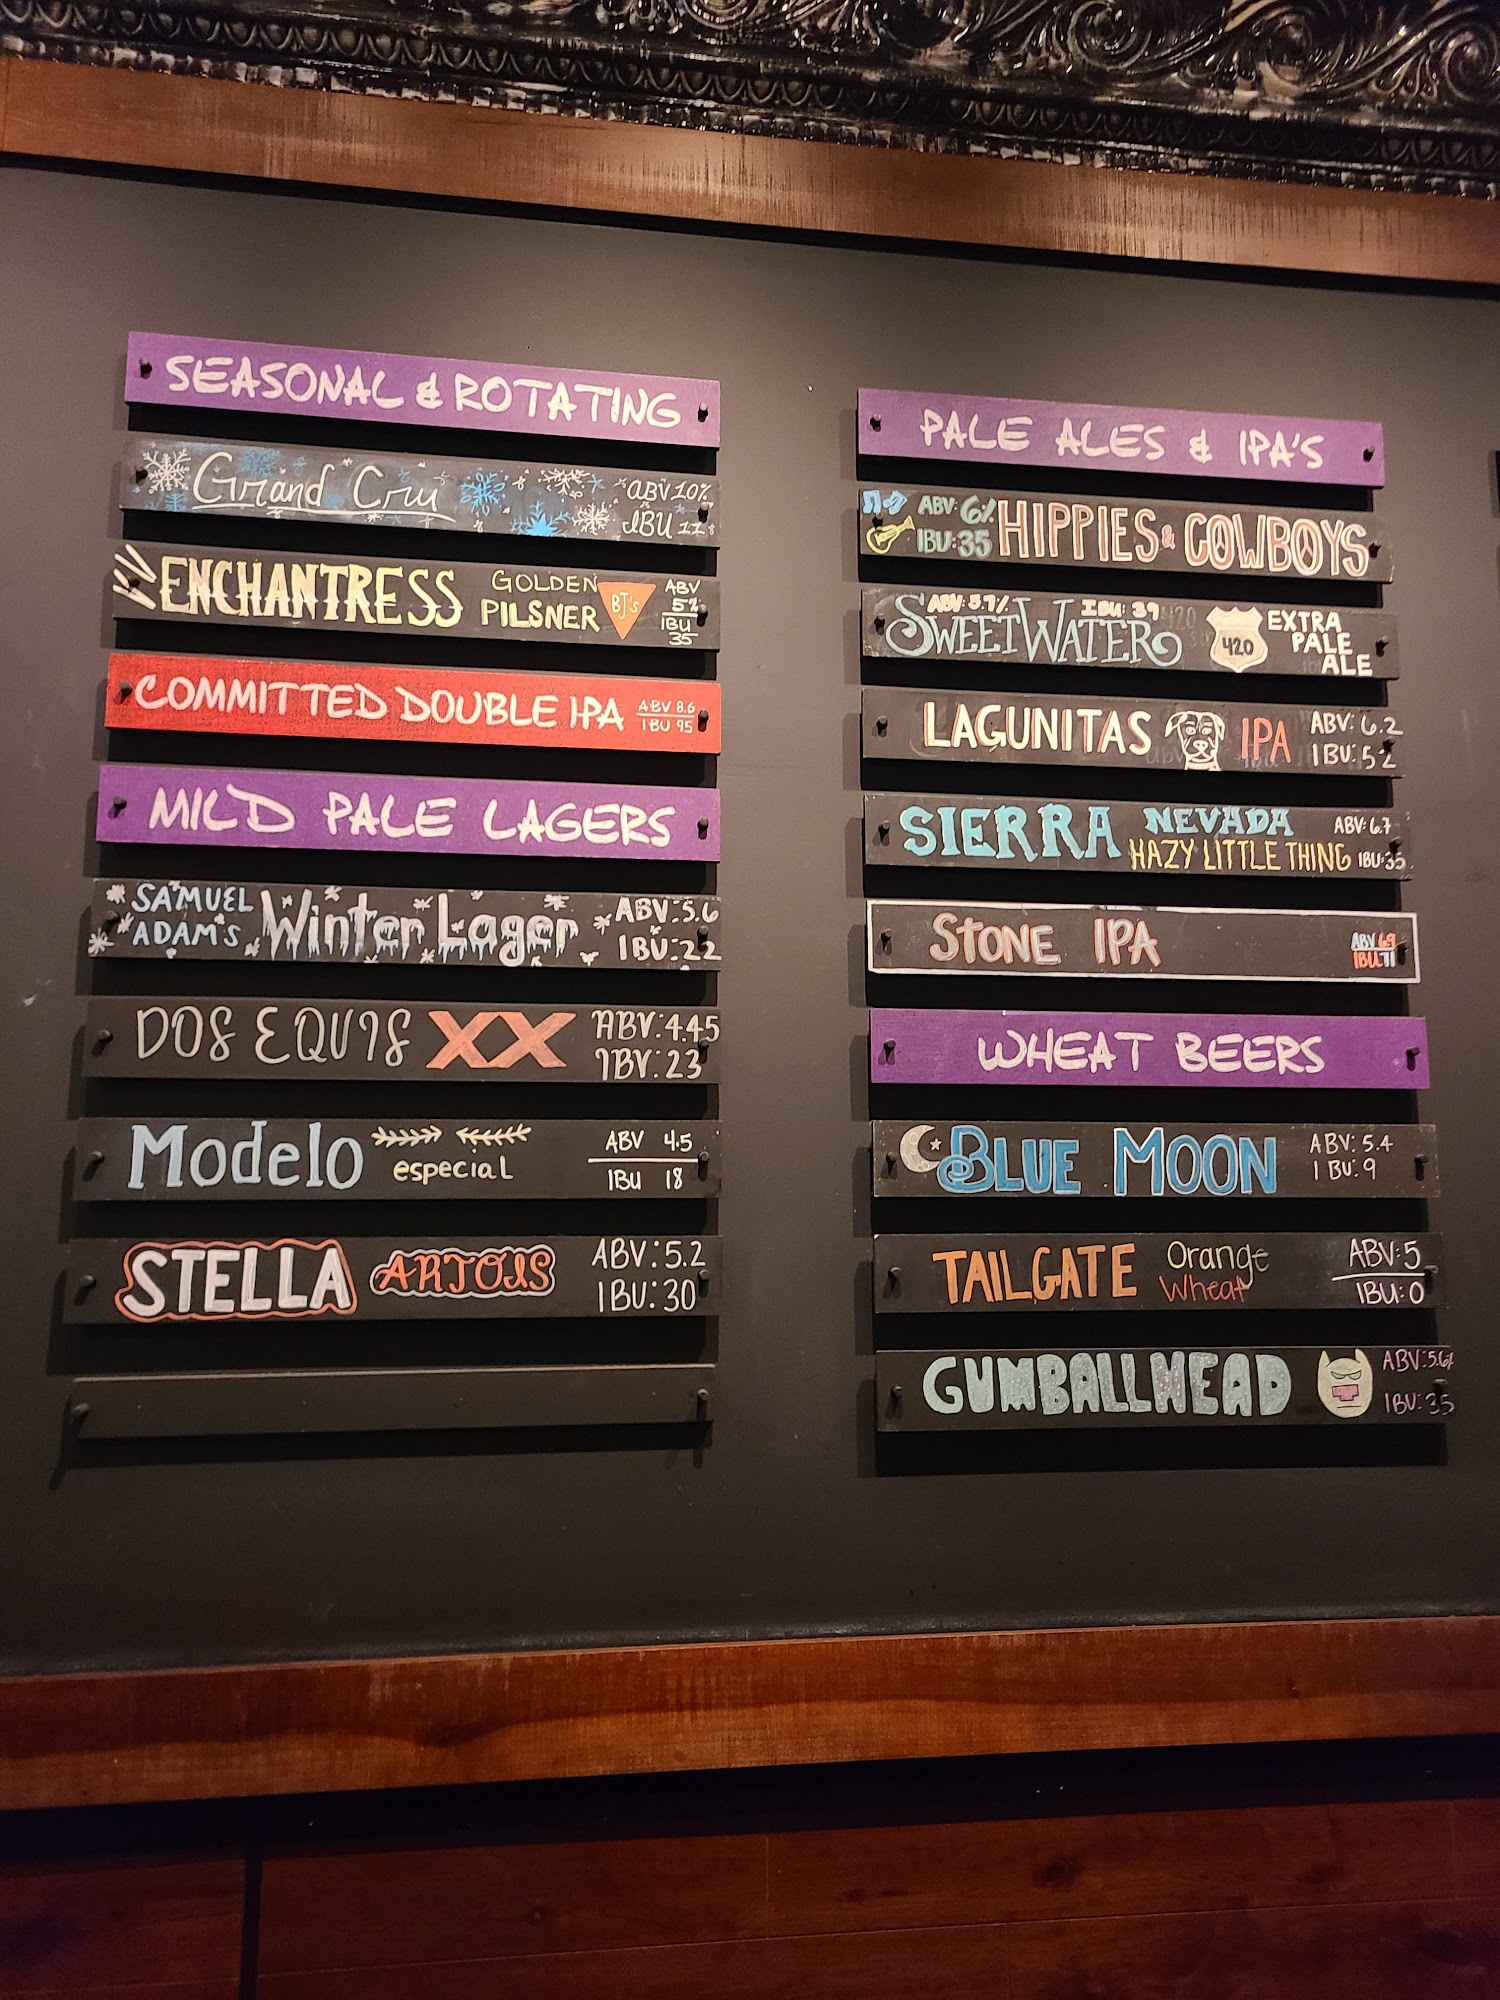 SEASONAL & ROTATING
Grand Cru ABV 10%
IBU 11
ENCHANTRESS GOLDEN PILSNER BJ's ABV 5% IBU 35
COMMITTED DOUBLE IPA ABV 8.6 IBU 95
MILD PALE LAGERS
SAMUEL ADAM'S Winter Lager ABV: 5.6 IBU: 22
DOS EQUIS XX ABV: 4.45 IBU: 23
Modelo especial ABV 4.5 IBU 18
STELLA ARTOIS ABV: 5.2 IBU: 30
PALE ALES & IPA'S
ABV: 6% IBU: 35 HIPPIES & COWBOYS
ABV: 5.7% IBU: 39
SWEETWATER 420 EXTRA PALE ALE
LAGUNITAS IPA ABV: 6.2 IBU: 52
SIERRA NEVADA HAZY LITTLE THING ABV: 6.7 IBU: 35
STONE IPA ABV 6.9 IBU 71
WHEAT BEERS
BLUE MOON ABV: 5.4 IBU: 9
TAILGATE Orange Wheat ABV: 5 IBU: 0
GUMBALLHEAD ABV: 5.6% IBU: 35